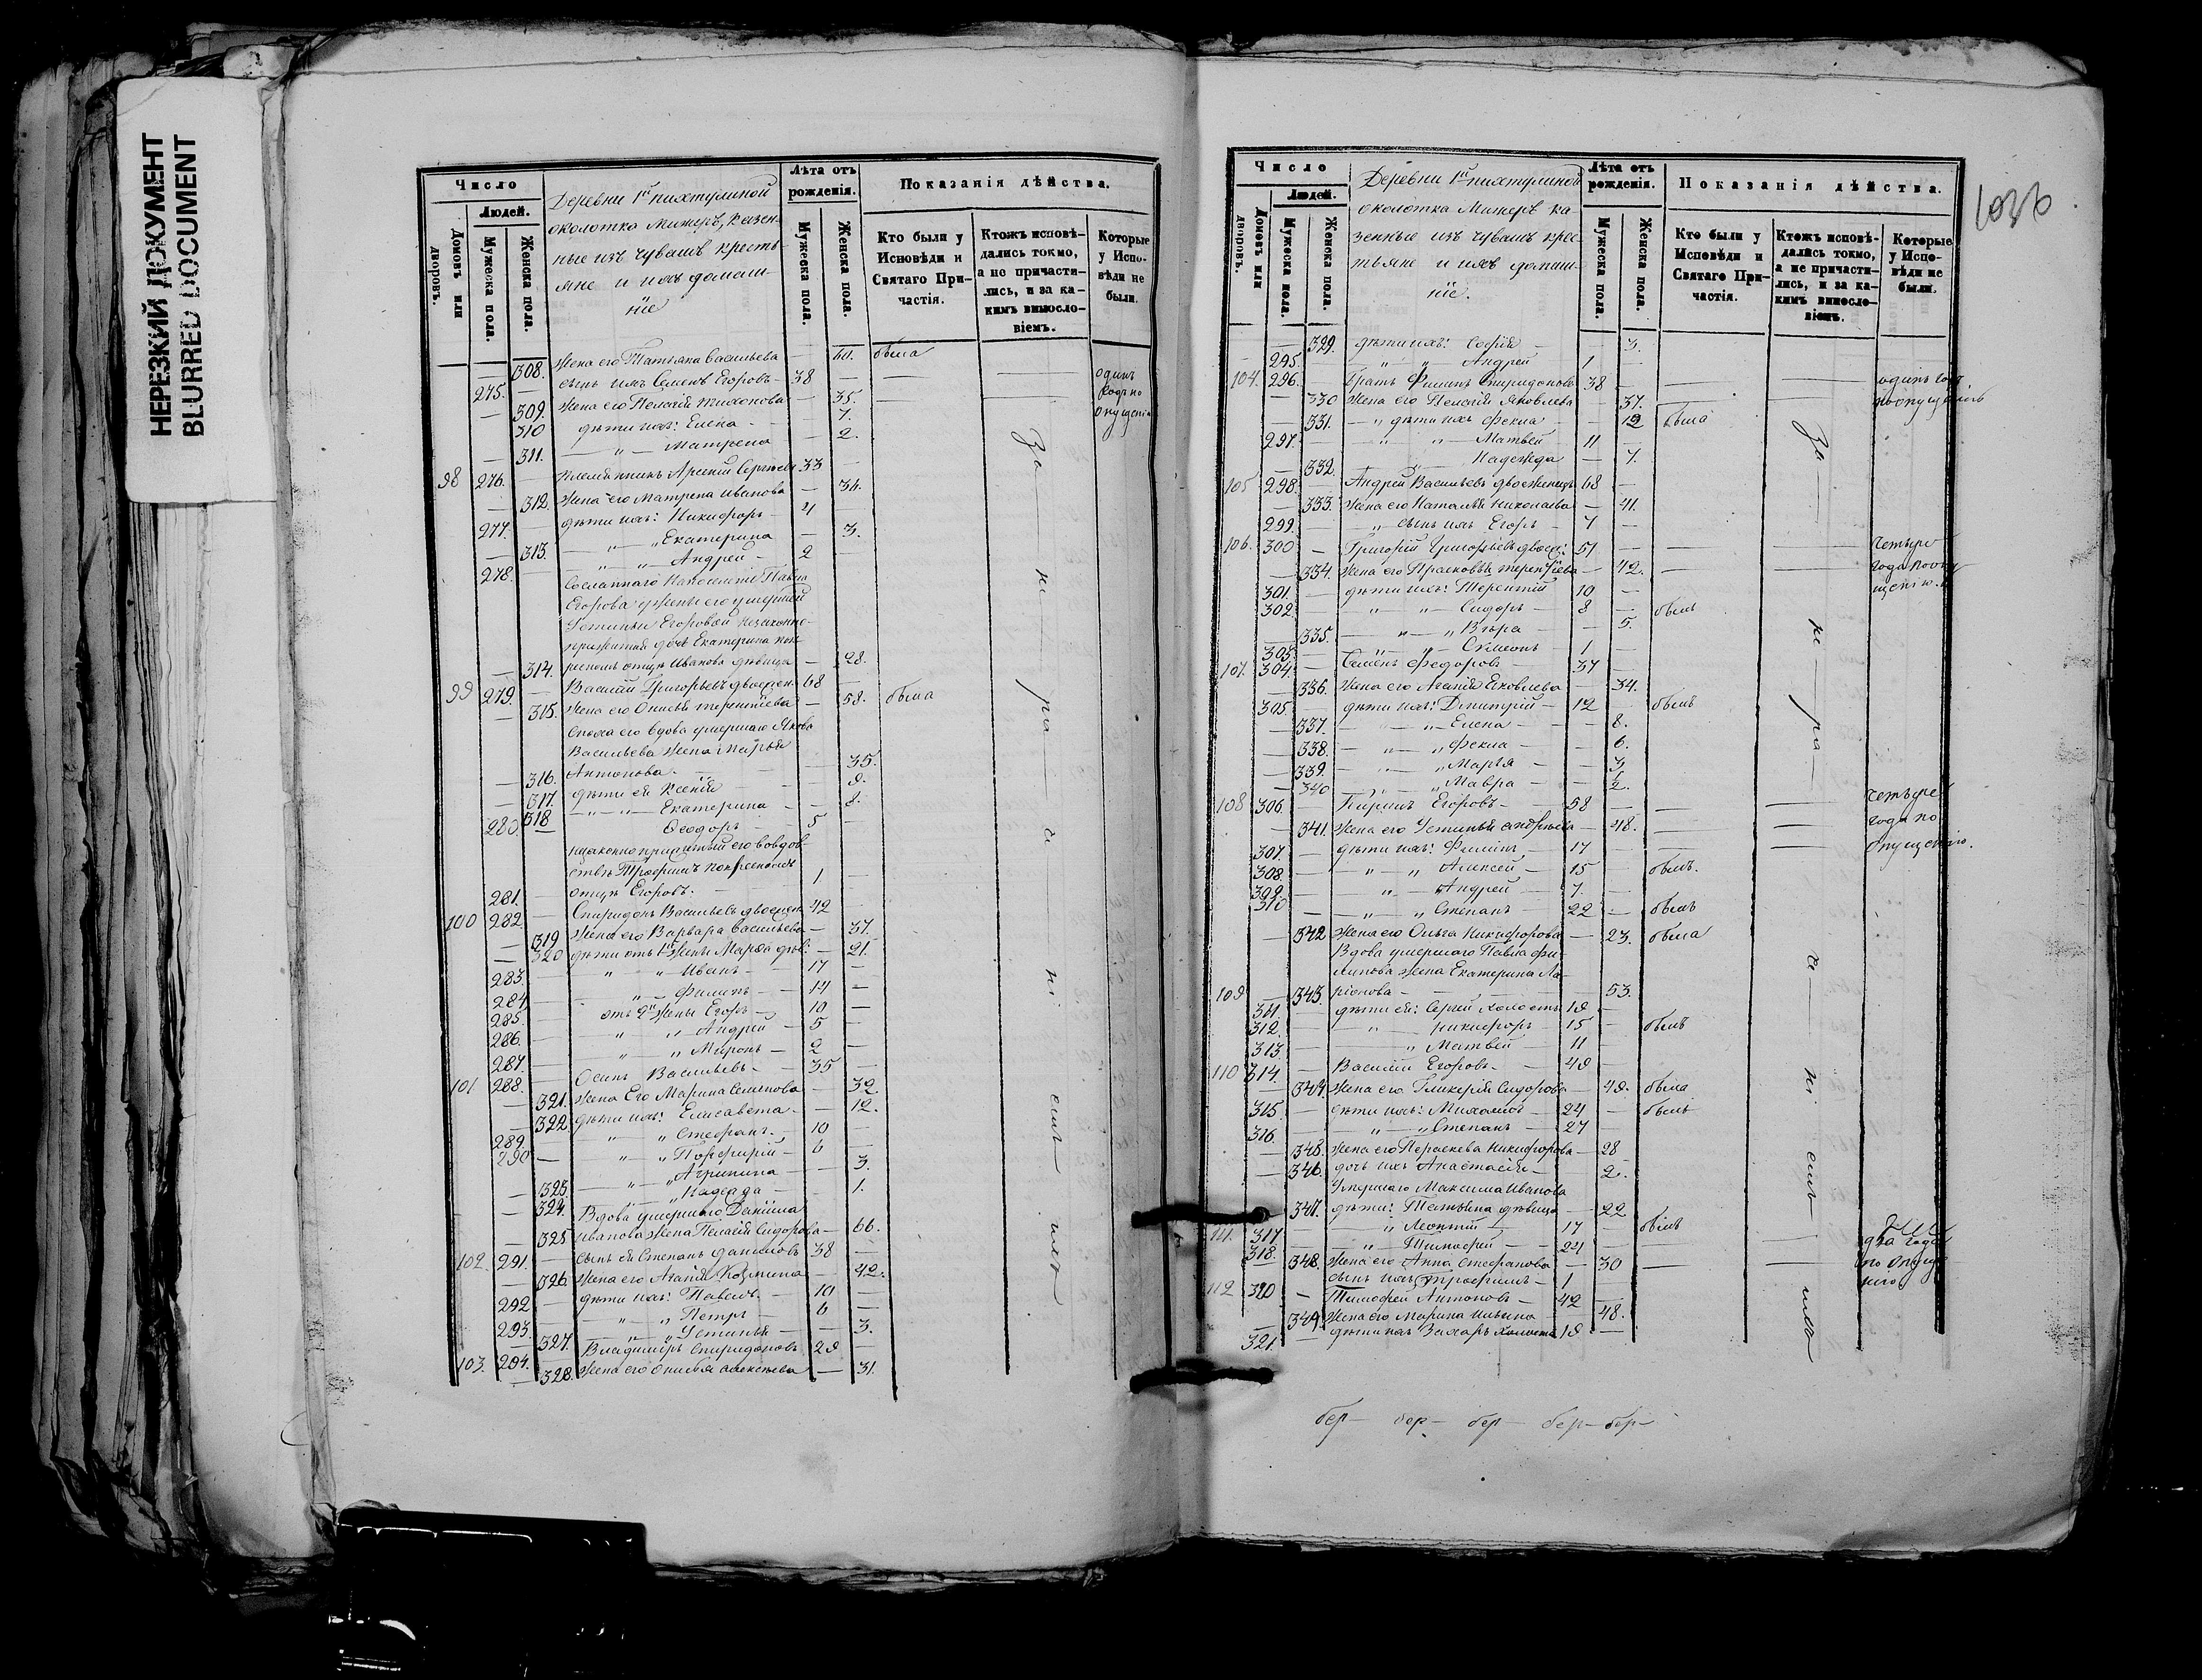 НЕРЕЗКИЙ ДОКУМЕНТ
BLURRED DOCUMENT
Число
Людей.
Домовъ или дворовъ.
Мужеска пола.
Женска пола.
Деревни 1й Пихтулиной
околотка Мижеръ, казен-
ные изъ чувашъ кресть-
яне и ихъ домаш-
ніе
Лѣта отъ рожденія.
Мужеска пола.
Женска пола.
Показанія дѣйства.
Кто были у Исповѣди и Святаго При-частія.
Ктожъ исповѣ-дались токмо, а не причасти-лись, и за ка-кимъ винословіемъ.
Которые у Испо-вѣди не были.
308. жена его Татьяна Васильева — 60. была
275. — сынъ ихъ Семенъ Егоровъ — 38 — одинъ
— 309. жена его Пелагія Тихонова — 35. — годъ по
— 310 дѣти ихъ: Елена — 7. опущенію
— 311. — „ — Матрена — 2.
98 276. — племянникъ Арсеній Сергѣевъ 33 —
— 312. жена его Матрена Иванова — 34.
277. — дѣти ихъ: Никифоръ — 4
— 313. — „ — „ Екатерина — 3.
278. — „ — „ Андрей — 2
Сосланнаго на поселеніе Павла
Егорова жены его умершей
Устиньи Егоровой незаконно-
прижитая дочь Екатерина по к-
— 314. рестном отцѣ Иванова дѣвица — 28.
99 279. — Василій Григорьевъ двоежен. 68 —
— 315. жена его Онисья Терентіева — 58. была
сноха его вдова умершаго Якова
Васильева жена Марья
— 316. Антонова. — 35.
— 317. дѣти ея Ксенія — 9.
— 318 — „ — „ Екатерина — 8.
280. — Ѳеодоръ — 5 —
незаконноприжитый его во вдов-
ствѣ Трофимъ по крестномъ
281. — отцѣ Егоровъ. — 1 —
100 282. — Спиридонъ Васильевъ двоежен. 42 —
— 319 жена его Варвара Васильева — 37.
— 320 дѣти отъ 1й жены Марѳа дѣв. — 21.
283. — „ — „ Иванъ — 17 —
284. — „ — Филипъ — 14 —
285. — отъ 2й жены Егоръ — 10 —
286. — „ „ Андрей — 5 —
287. — „ „ Миронъ — 2 —
101 288. — Осипъ Васильевъ — 35 —
— 321. жена Его Марина Семенова — 32
— 322. дѣти ихъ: Елисавета — 12.
289. — „ „ Стефанъ — 10 —
290 — „ — „ Порфирій — 6
— 323. — „ — Агрипина — 3.
— 324. — „ — Надежда — 1.
Вдова умершаго Даніила
— 325 Иванова жена Пелагія Сидорова — 66.
102. 291. — сынъ ея Степанъ Даниловъ 38 —
— 326. жена его Агафія Козмина — 42.
292 — дѣти ихъ: Павелъ. — 10 —
293. — „ — „ Петръ — 6 —
— 327. — „ — „ Устинья — 3.
103. 294. — Владиміръ Спиридоновъ 29 —
— 328. жена его Онисья Алексѣева — 31.
За
не
ра
че
ні
емъ
ихъ
Число
Людей.
Домовъ или дворовъ.
Мужеска пола.
Женска пола.
Деревни 1й Пихтулиной
околотка Мижеръ ка-
зенные изъ чувашъ крес-
тьяне и ихъ домаш-
ніе.
Лѣта отъ рожденія.
Мужеска пола.
Женска пола.
Показанія дѣйства.
Кто были у Исповѣди и Святаго При-частія.
Ктожъ исповѣ-дались токмо, а не причасти-лись, и за ка-кимъ винословіемъ.
Которые у Испо-вѣди не были.
1036
— 329. дѣти ихъ: Софія — 3.
295. — „ „ Андрей 1 —
104. 296. — Братъ Филипъ Спиридоновъ 38 — одинъ годъ
— 330 жена его Пелагія Яковлева — 37. — по опущенію
— 331. — „ дѣти ихъ Фекла — 12 была
297. — „ „ Матвей 11 —
— 332. — Надежда — 7.
105 298. — Андрей Васильевъ двоеженецъ 68 —
— 333. жена его Наталья Николаева — 41.
299. — „ сынъ ихъ Егоръ — 7 —
106. 300 — Григорій Григорьевъ двоеж: 51 — четыре
— 334. жена его Прасковья Терентіева — 42. — года по опу
301. — дѣти ихъ: Терентій 10 — щенію.
302. — „ „ Сидоръ — 8 — былъ
— 335. — „ — „ Вѣра — 5.
303. — „ — Симеонъ — 1 —
107. 304. — Семенъ Федоровъ — 37 —
— 336. жена его Агафія Яковлева — 34.
305. — дѣти ихъ: Дмитрій — 12 былъ
— 337. — „ — Елена — 8.
— 338. — „ — „ Фекла — 6.
— 339. — „ — „ Марѳа — 3
— 340 — „ — „ Мавра — ½.
108 306. — Кирилъ Егоровъ — 58 — четыре
— 341. жена его Устинья Андреева — 48. — года по
307. — дѣти ихъ: Филипъ — 17 — опущенію.
308. — „ „ Алексей — 15 — былъ.
309. — „ „ Андрей — 7. —
310 — „ „ Степанъ — 22 — былъ
— 342 жена его Ольга Никифорова — 23. была
Вдова умершаго Павла Фи-
липова жена Екатерина Ла-
109 — 343. ріонова — 53.
311. — дѣти ея: Сергей холостъ 19 —
312. — „ Никифоръ — 15 — былъ
313. — „ Матвей — 11 —
110 314. — Василій Егоровъ — 49
— 344. жена его Гликерія Сидорова — 49. была
315 — дѣти ихъ: Михаилъ — 24 — былъ
316. — „ — „ Степанъ — 27 —
— 345. жена его Пераскева Никифорова — 28
— 346. дочь ихъ Анастасія — 2.
Умершаго Максима Иванова
— 347. дѣти: Татьяна дѣвица — 22
111. 317 — „ Леонтій — 17 — былъ
318. — „ Тимофей — 24 — два года
— 348. жена его Анна Стефанова — 30 — по опуще
сынъ ихъ Трофимъ — 1 нію
112 320 — Тимофей Антоновъ — 42 —
— 349. жена его Марина Ильина — 48.
321. дѣти ихъ Захаръ холостъ 19 —
За
не
ра
че
ні
емъ
ихъ
бер — бер — бер — бер — бер —